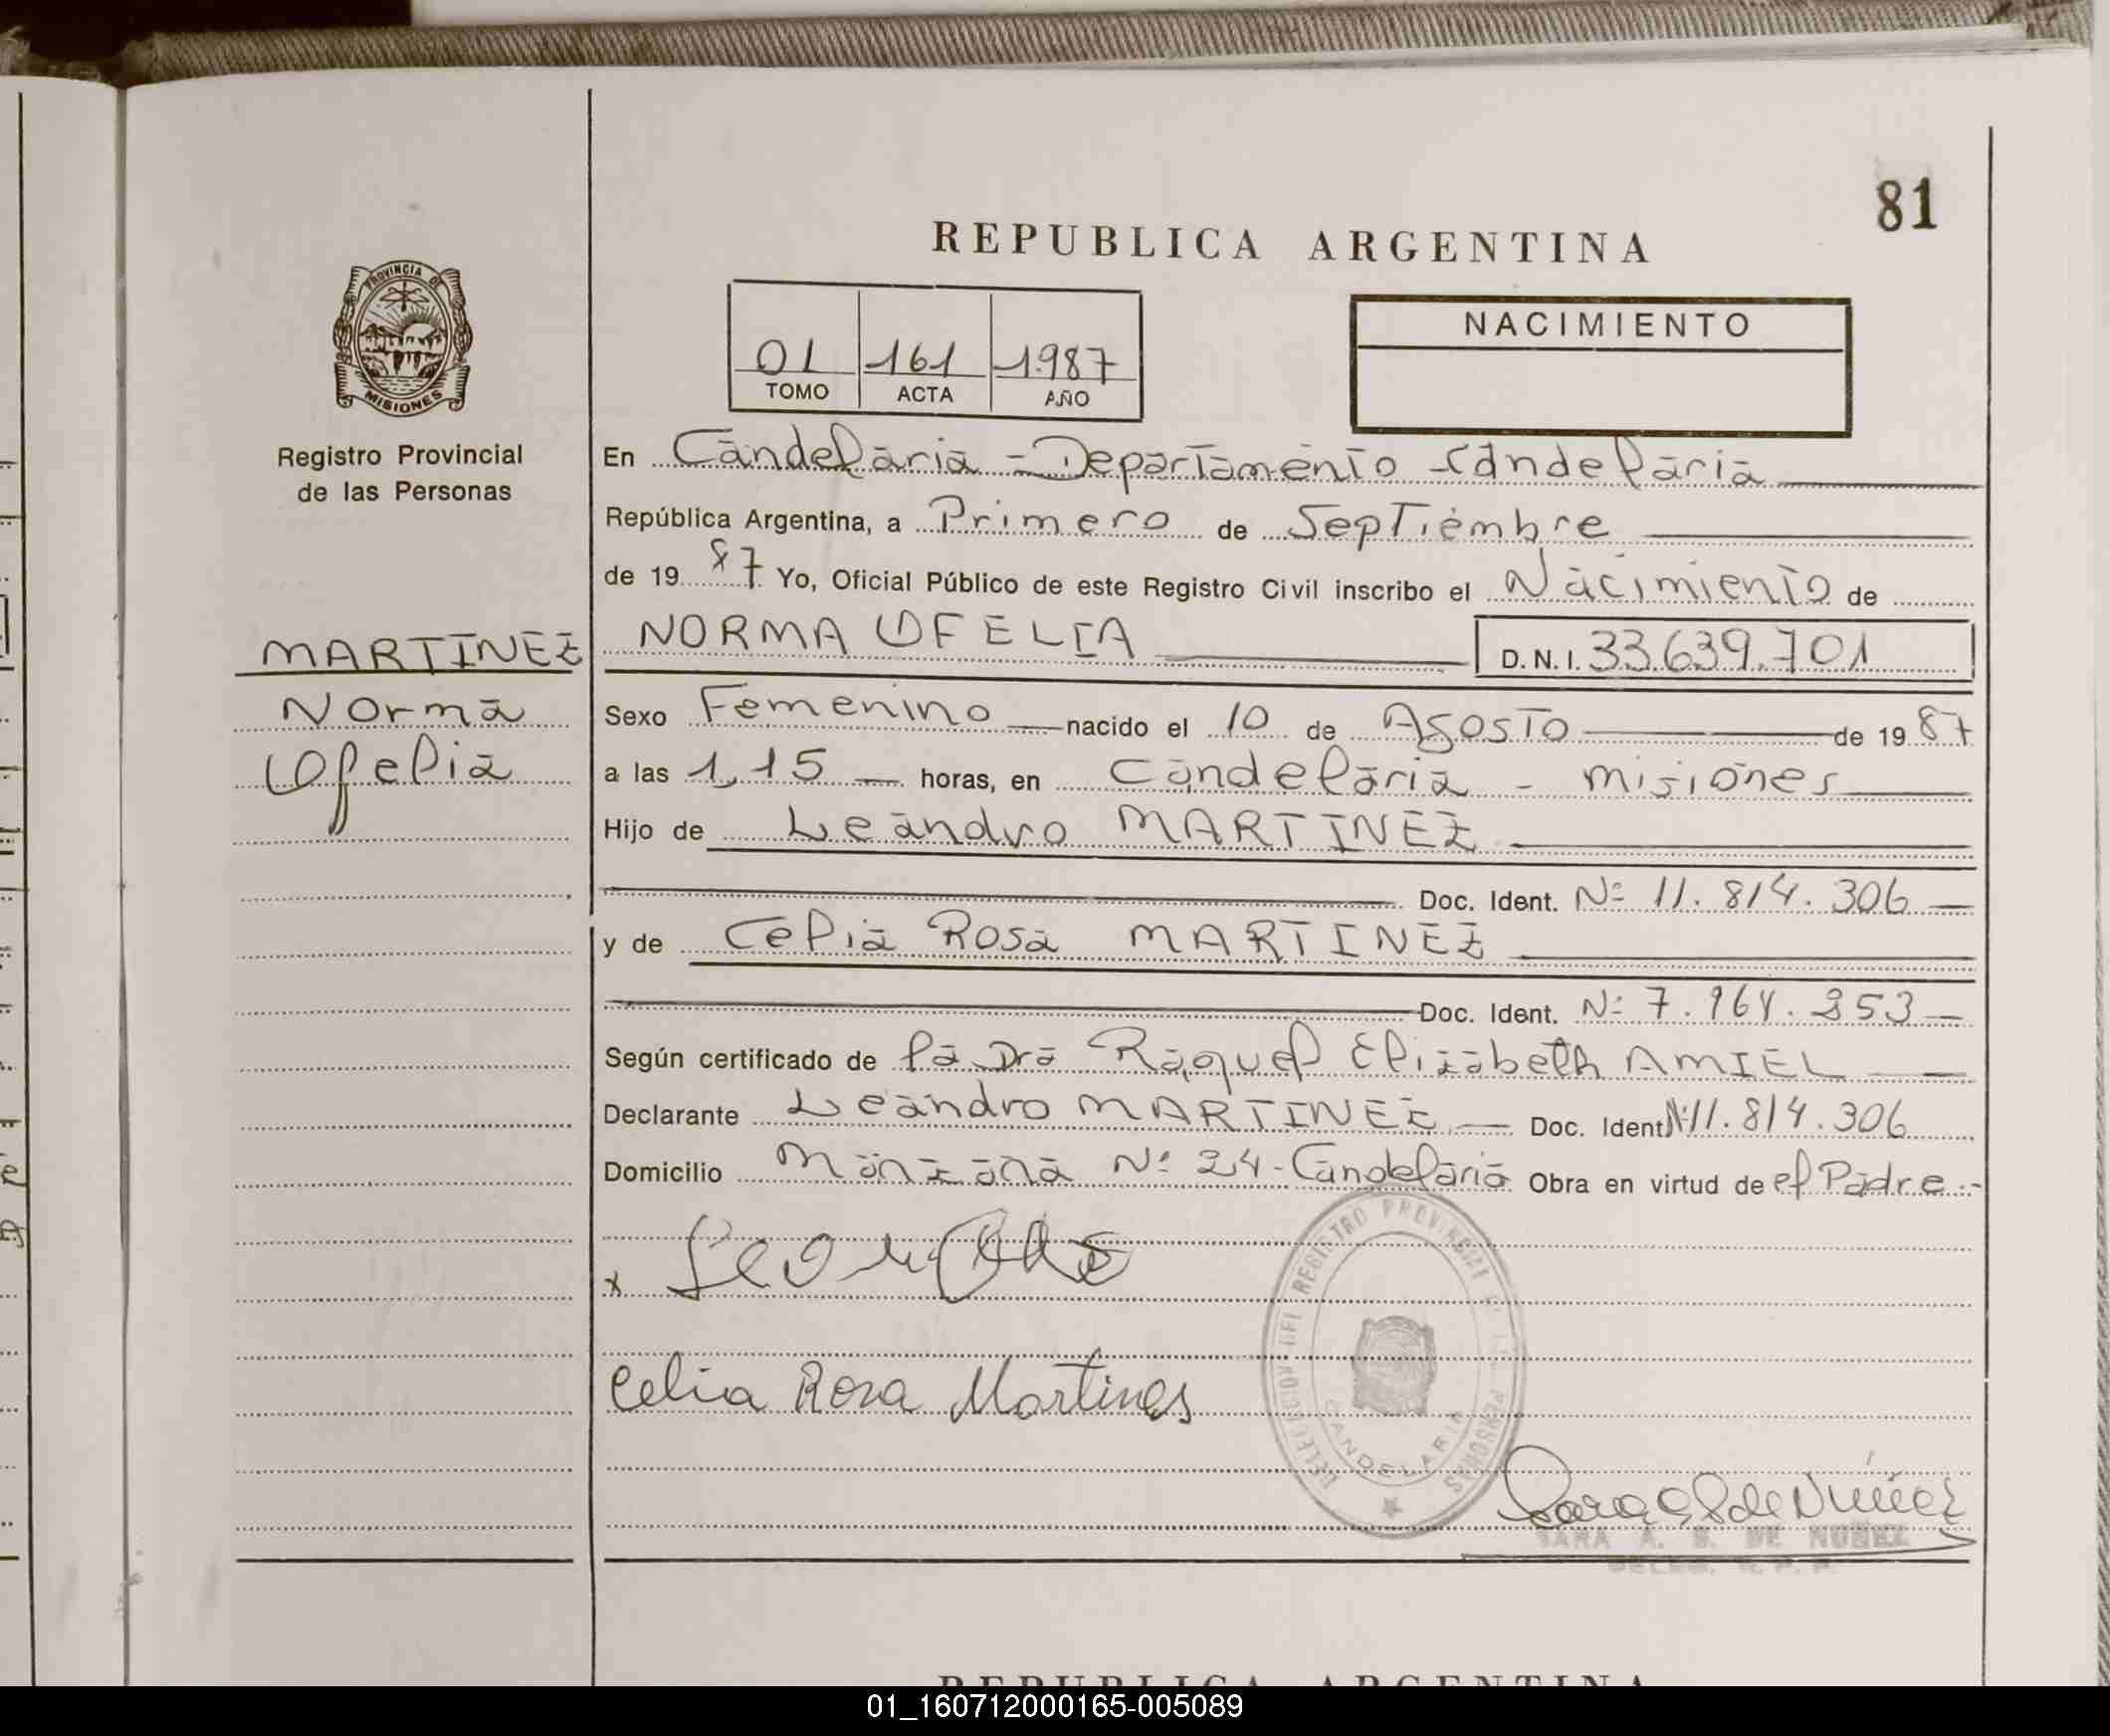 81
REPUBLICA ARGENTINA
PROVINCIA DE
MISIONES
Registro Provincial
de las Personas
01 161 1.987
TOMO ACTA AÑO
NACIMIENTO
En Candelaria - Departamento Candelaria
República Argentina, a Primero de Septiembre
de 19 87 Yo, Oficial Público de este Registro Civil inscribo el Nacimiento de
MARTINEZ
Norma
Ofelia
NORMA OFELIA D.N.I. 33.639.701
Sexo Femenino nacido el 10 de Agosto de 19 87
a las 1,15 horas, en Candelaria - misiones
Hijo de Leandro MARTINEZ
Doc. Ident. Nº 11.814.306
y de Celia Rosa MARTINEZ
Doc. Ident. Nº 7.964.353
Según certificado de la Dra Raquel Elizabeth AMIEL
Declarante Leandro MARTINEZ Doc. Ident Nº 11.814.306
Domicilio Manzana Nº 24 - Candelaria Obra en virtud de el Padre.-
x
Celia Rosa Martines
DEL REGISTRO PROVINCIAL PERSONAS
CANDELARIA
Sara de Nuñez
SARA A. S. DE NUÑEZ
REPUBLICA ARGENTINA
01_160712000165-005089